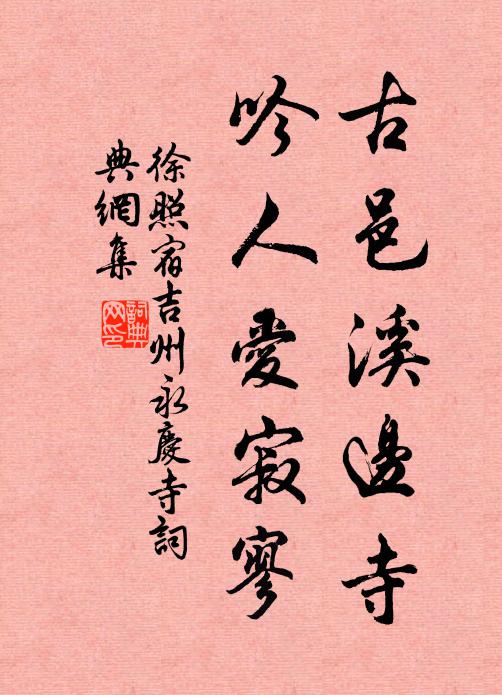 古邑溪邊寺
吟人愛寂寥
徐照宿吉州永慶寺詞
典網集
詞典网印